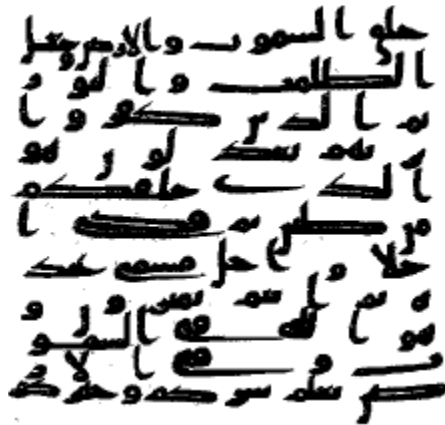 خلق السموت والارض وجعل
الظلمت والنور
ثم الذين كفروا
بربهم يعدلون هو
الذى خلقكم
من طين ثم قضى ا
جلا واجل مسمى عند
ه ثم انتم تمترون و
هو الله فى السمو
ت وفى الار
ض يعلم سركم وجهرك